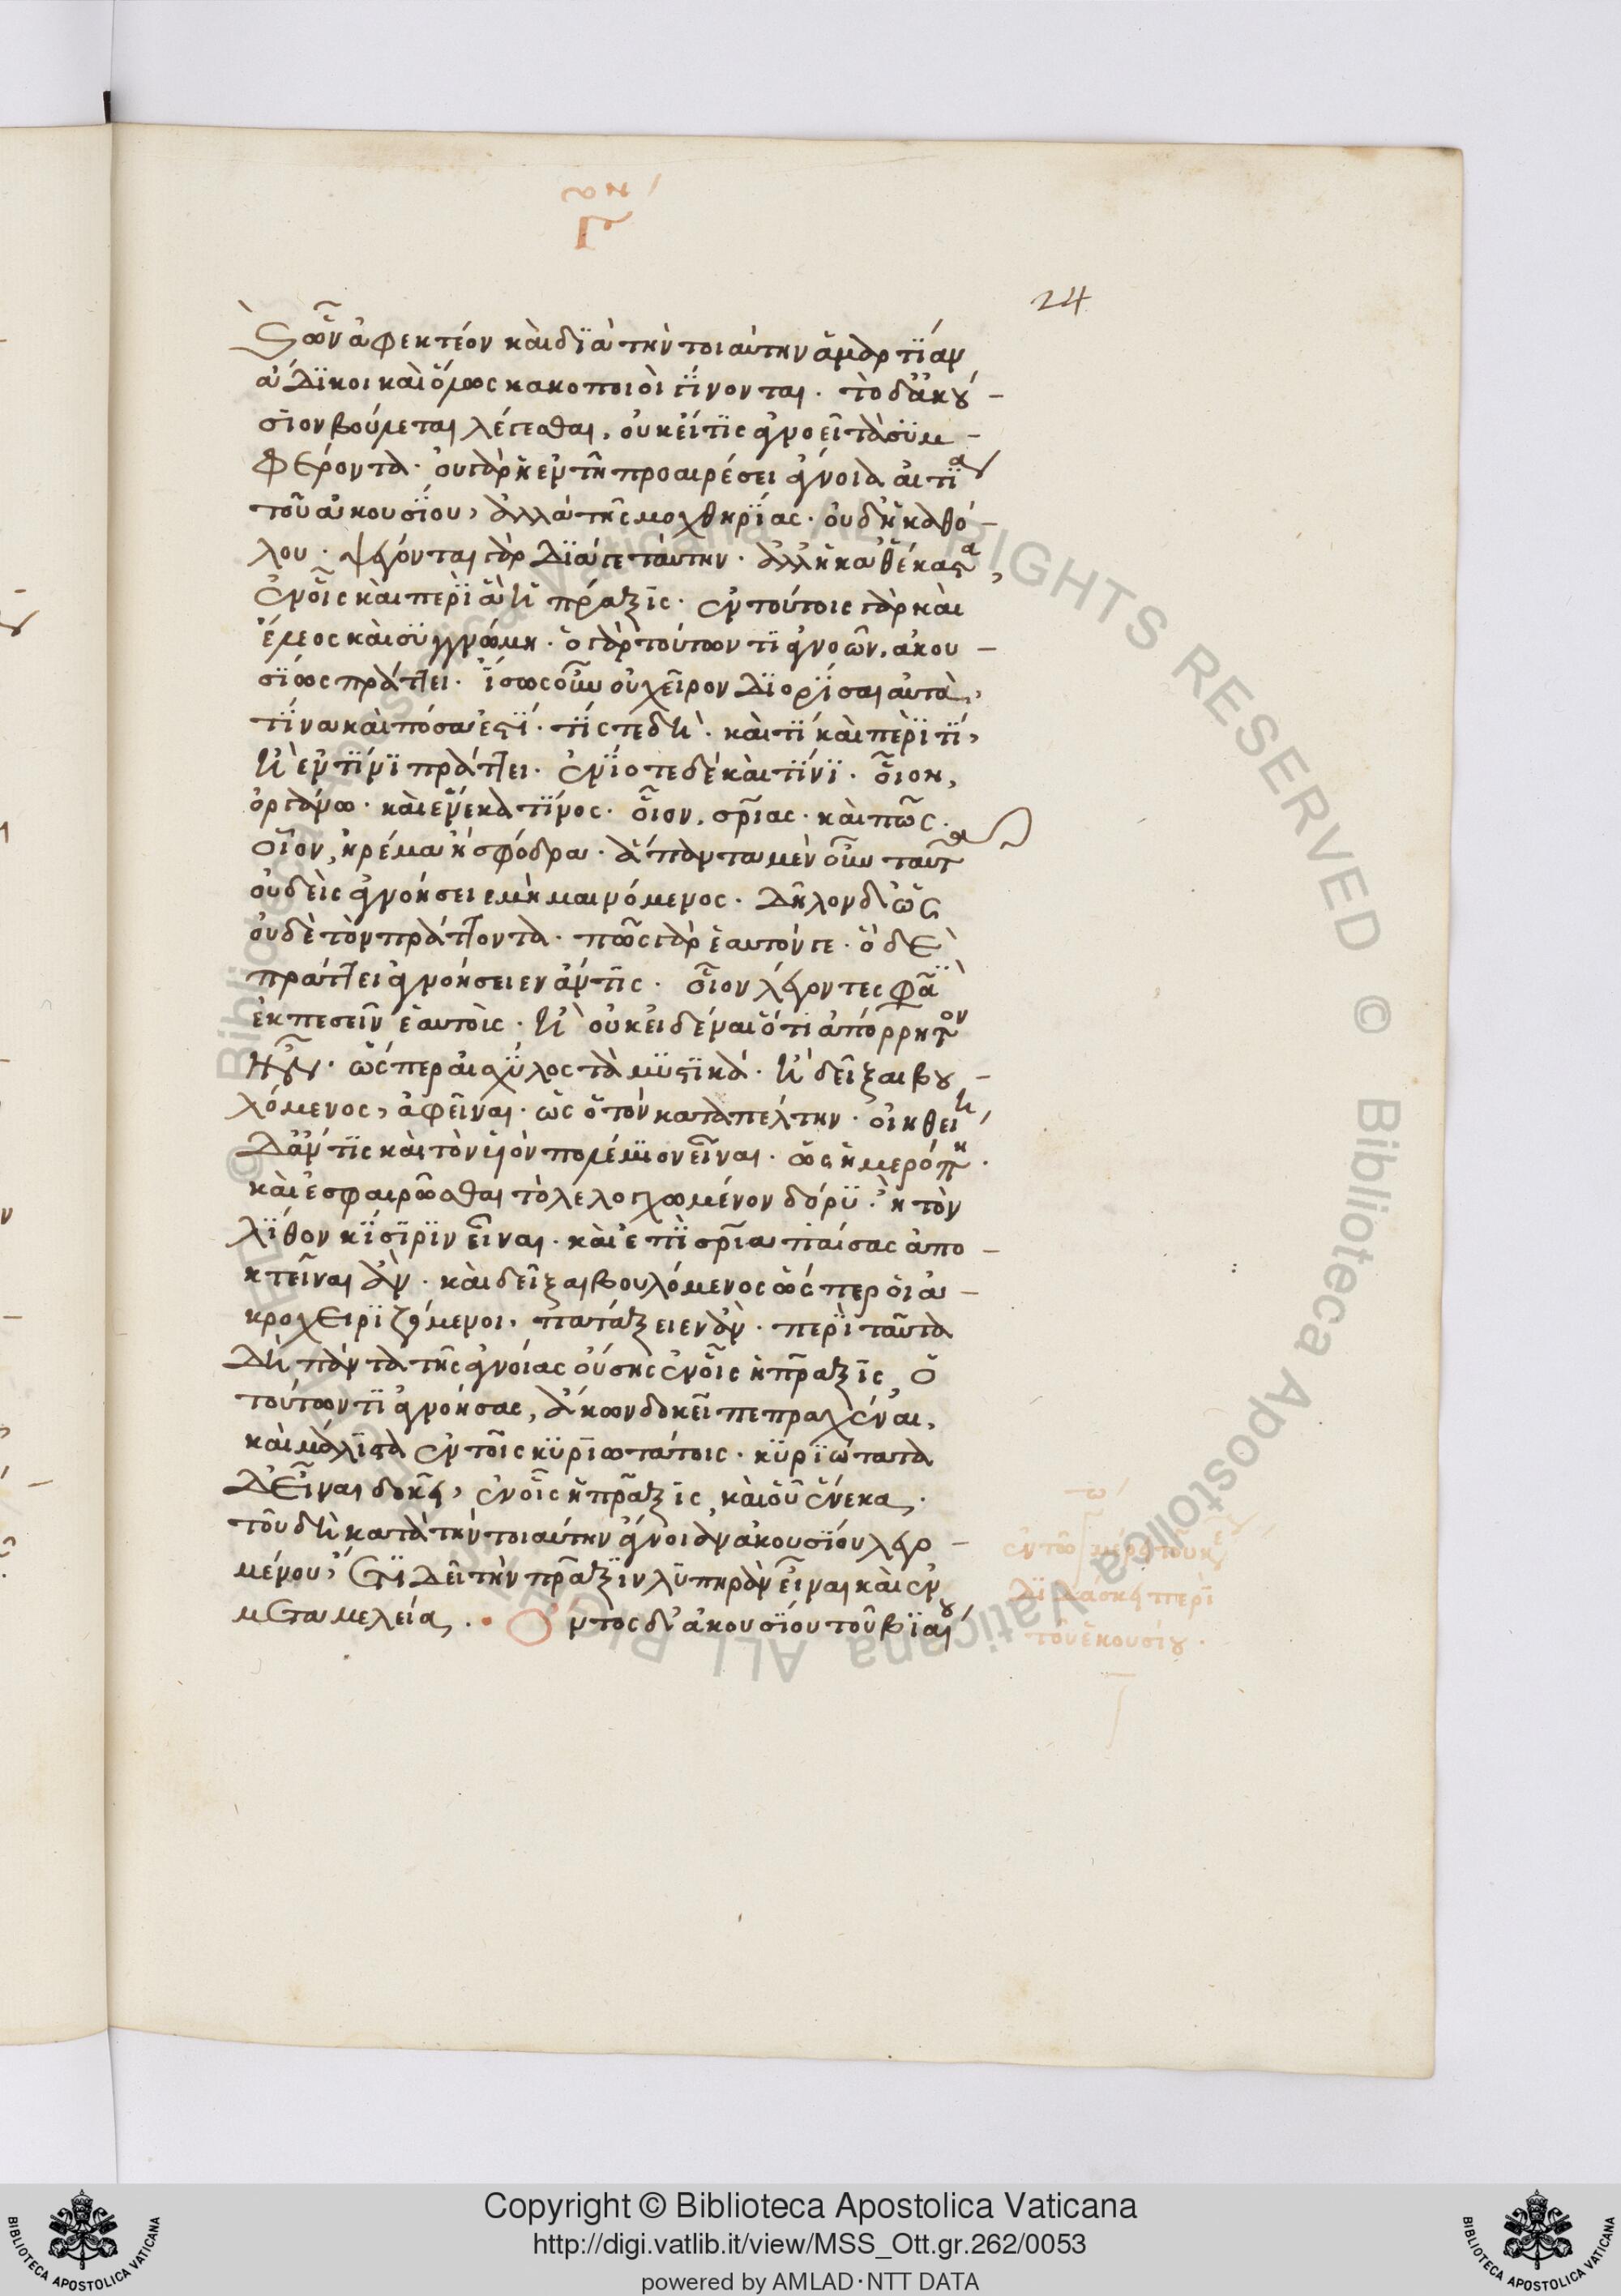 24
ὧν ἀφεκτέον καὶ διὰ τὴν τοιαύτην ἁμαρτίαν
ἄδικοι καὶ ὅλως κακοποιοὶ γίνονται. τὸ δ' ἀκού-
σιον βούλεται λέγεσθαι, οὐκ εἴ τις ἀγνοεῖ τὰ συμ-
φέροντα. οὐ γὰρ ἡ ἐν τῇ προαιρέσει ἄγνοια αἰτία
τοῦ ἀκουσίου, ἀλλὰ τῆς μοχθηρίας. οὐδ' ἡ καθό-
λου. ψέγονται γὰρ διά γε ταύτην. ἀλλ' ἡ καθ' ἕκαστα,
ἐν οἷς καὶ περὶ ἃ ἡ πρᾶξις. ἐν τούτοις γὰρ καὶ
ἔλεος καὶ συγγνώμη. ὁ γὰρ τούτων τι ἀγνοῶν, ἀκου-
σίως πράττει. ἴσως οὖν οὐ χεῖρον διορίσαι αὐτὰ,
τίνα καὶ πόσα ἐστί. τίς τε δὴ. καὶ τί καὶ περὶ τί,
ἢ ἐν τίνι πράττει. ἐνίοτε δὲ καὶ τίνι. οἷον,
ὀργάνω. καὶ ἕνεκα τίνος. οἷον, σωτηρίας. καὶ πῶς.
οἷον, ἠρέμα ἢ σφόδρα. ἅπαντα μὲν οὖν ταῦτα
οὐδεὶς ἀγνοήσειε μὴ μαινόμενος. δῆλον δ' ὡς
οὐδὲ τὸν πράττοντα. πῶς γὰρ ἑαυτόν γε. ὃ δὲ
πράττει ἀγνοήσειεν ἄν τις. οἷον λέγοντες φασὶν
ἐκπεσεῖν ἑαυτοὺς. ἢ οὐκ εἰδέναι ὅτι ἀπόρρητον
ἦν. ὥσπερ αἰσχύλος τὰ μυστικά. ἢ δεῖξαι βου-
λόμενος, ἀφεῖναι. ὡς ὁ τὸν καταπέλτην. οἰηθείη
δ' ἄν τις καὶ τὸν υἱὸν πολέμιον εἶναι. ὡς ἡ μερόπη.
καὶ ἐσφαιρῶσθαι τὸ λελογχωμένον δόρυ. ἢ τὸν
λίθον κίσιριν εἶναι. καὶ ἐπὶ σωτηρία παίσας ἀπο-
κτεῖναι ἄν. καὶ δεῖξαι βουλόμενος ὥσπερ οἱ ἀ-
κροχειριζόμενοι, πατάξειεν ἄν. περὶ ταῦτα
δὴ πάντα τῆς ἀγνοίας οὔσης ἐν οἷς ἡ πρᾶξις, ὁ
τούτων τι ἀγνοήσας, ἄκων δοκεῖ πεπραχέναι,
καὶ μάλιστα ἐν τοῖς κυριωτάτοις. κυριώτατα
δ' εἶναι δοκεῖ, ἐν οἷς ἡ πρᾶξις, καὶ οὗ ἕνεκα.
τοῦ δὴ κατὰ τὴν τοιαύτην ἄγνοιαν ἀκουσίου λεγο-
μένου, ἔτι δεῖ τὴν πρᾶξιν λυπηρὰν εἶναι καὶ ἐν
μεταμελεία. ὄντος δ' ἀκουσίου τοῦ βιαίου
διδάσκει περὶ
τοῦ ἑκουσίου.
Copyright © Biblioteca Apostolica Vaticana
http://digi.vatlib.it/view/MSS_Ott.gr.262/0053
powered by AMLAD·NTT DATA
BIBLIOTECA APOSTOLICA VATICANA
BIBLIOTECA APOSTOLICA VATICANA